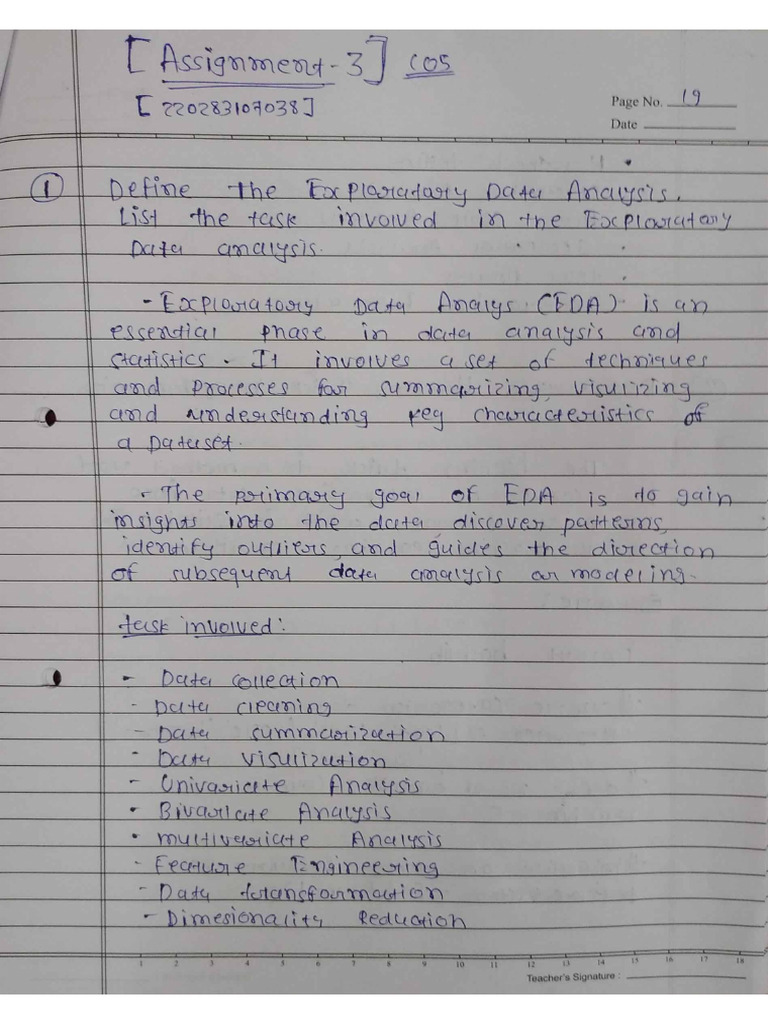 [Assignment-3] CO5
[220283107038]
Page No. 19
Date
① Define the Exploratory Data Analysis.
List the task involved in the Exploratory
Data analysis.
- Exploratory Data Analys. (EDA) is an
essential phase in data analysis and
statistics. It involves a set of techniques
and processes for summarizing, visulizing
and understanding key characteristics of
a Dataset.
- The primary goal of EDA is to gain
insights into the data discover patterns,
identify outliers, and guides the direction
of subsequent data analysis or modeling.
task involved:
- Data collection
- Data cleaning
- Data summarization
- Data visulization
- Univariate Analysis
- Bivariate Analysis
- multivariate Analysis
- Feature Engineering
- Data transformation
- Dimesionality Reduction
1 2 3 4 5 6 7 8 9 10 11 12 13 14 15 16 17 18
Teacher's Signature :